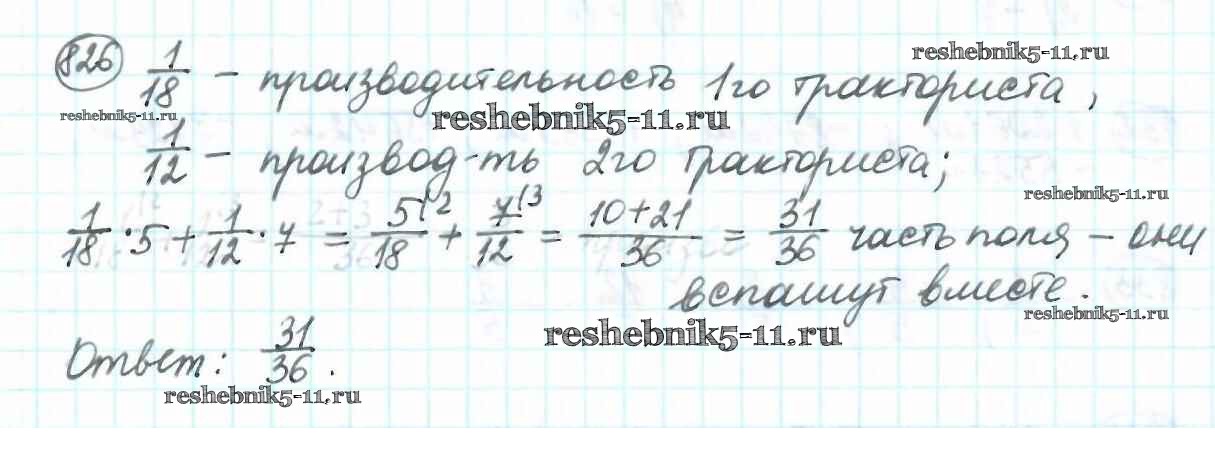 826 1/18 – производительность 1го тракториста,
reshebnik5-11.ru
reshebnik5-11.ru
reshebnik5-11.ru
1/12 – производ-ть 2го тракториста;
reshebnik5-11.ru
1/18 · 5 + 1/12 · 7 = 5\2/18 + 7\3/12 = 10+21/36 = 31/36 часть поля – они
вспашут вместе.
reshebnik5-11.ru
reshebnik5-11.ru
Ответ: 31/36.
reshebnik5-11.ru